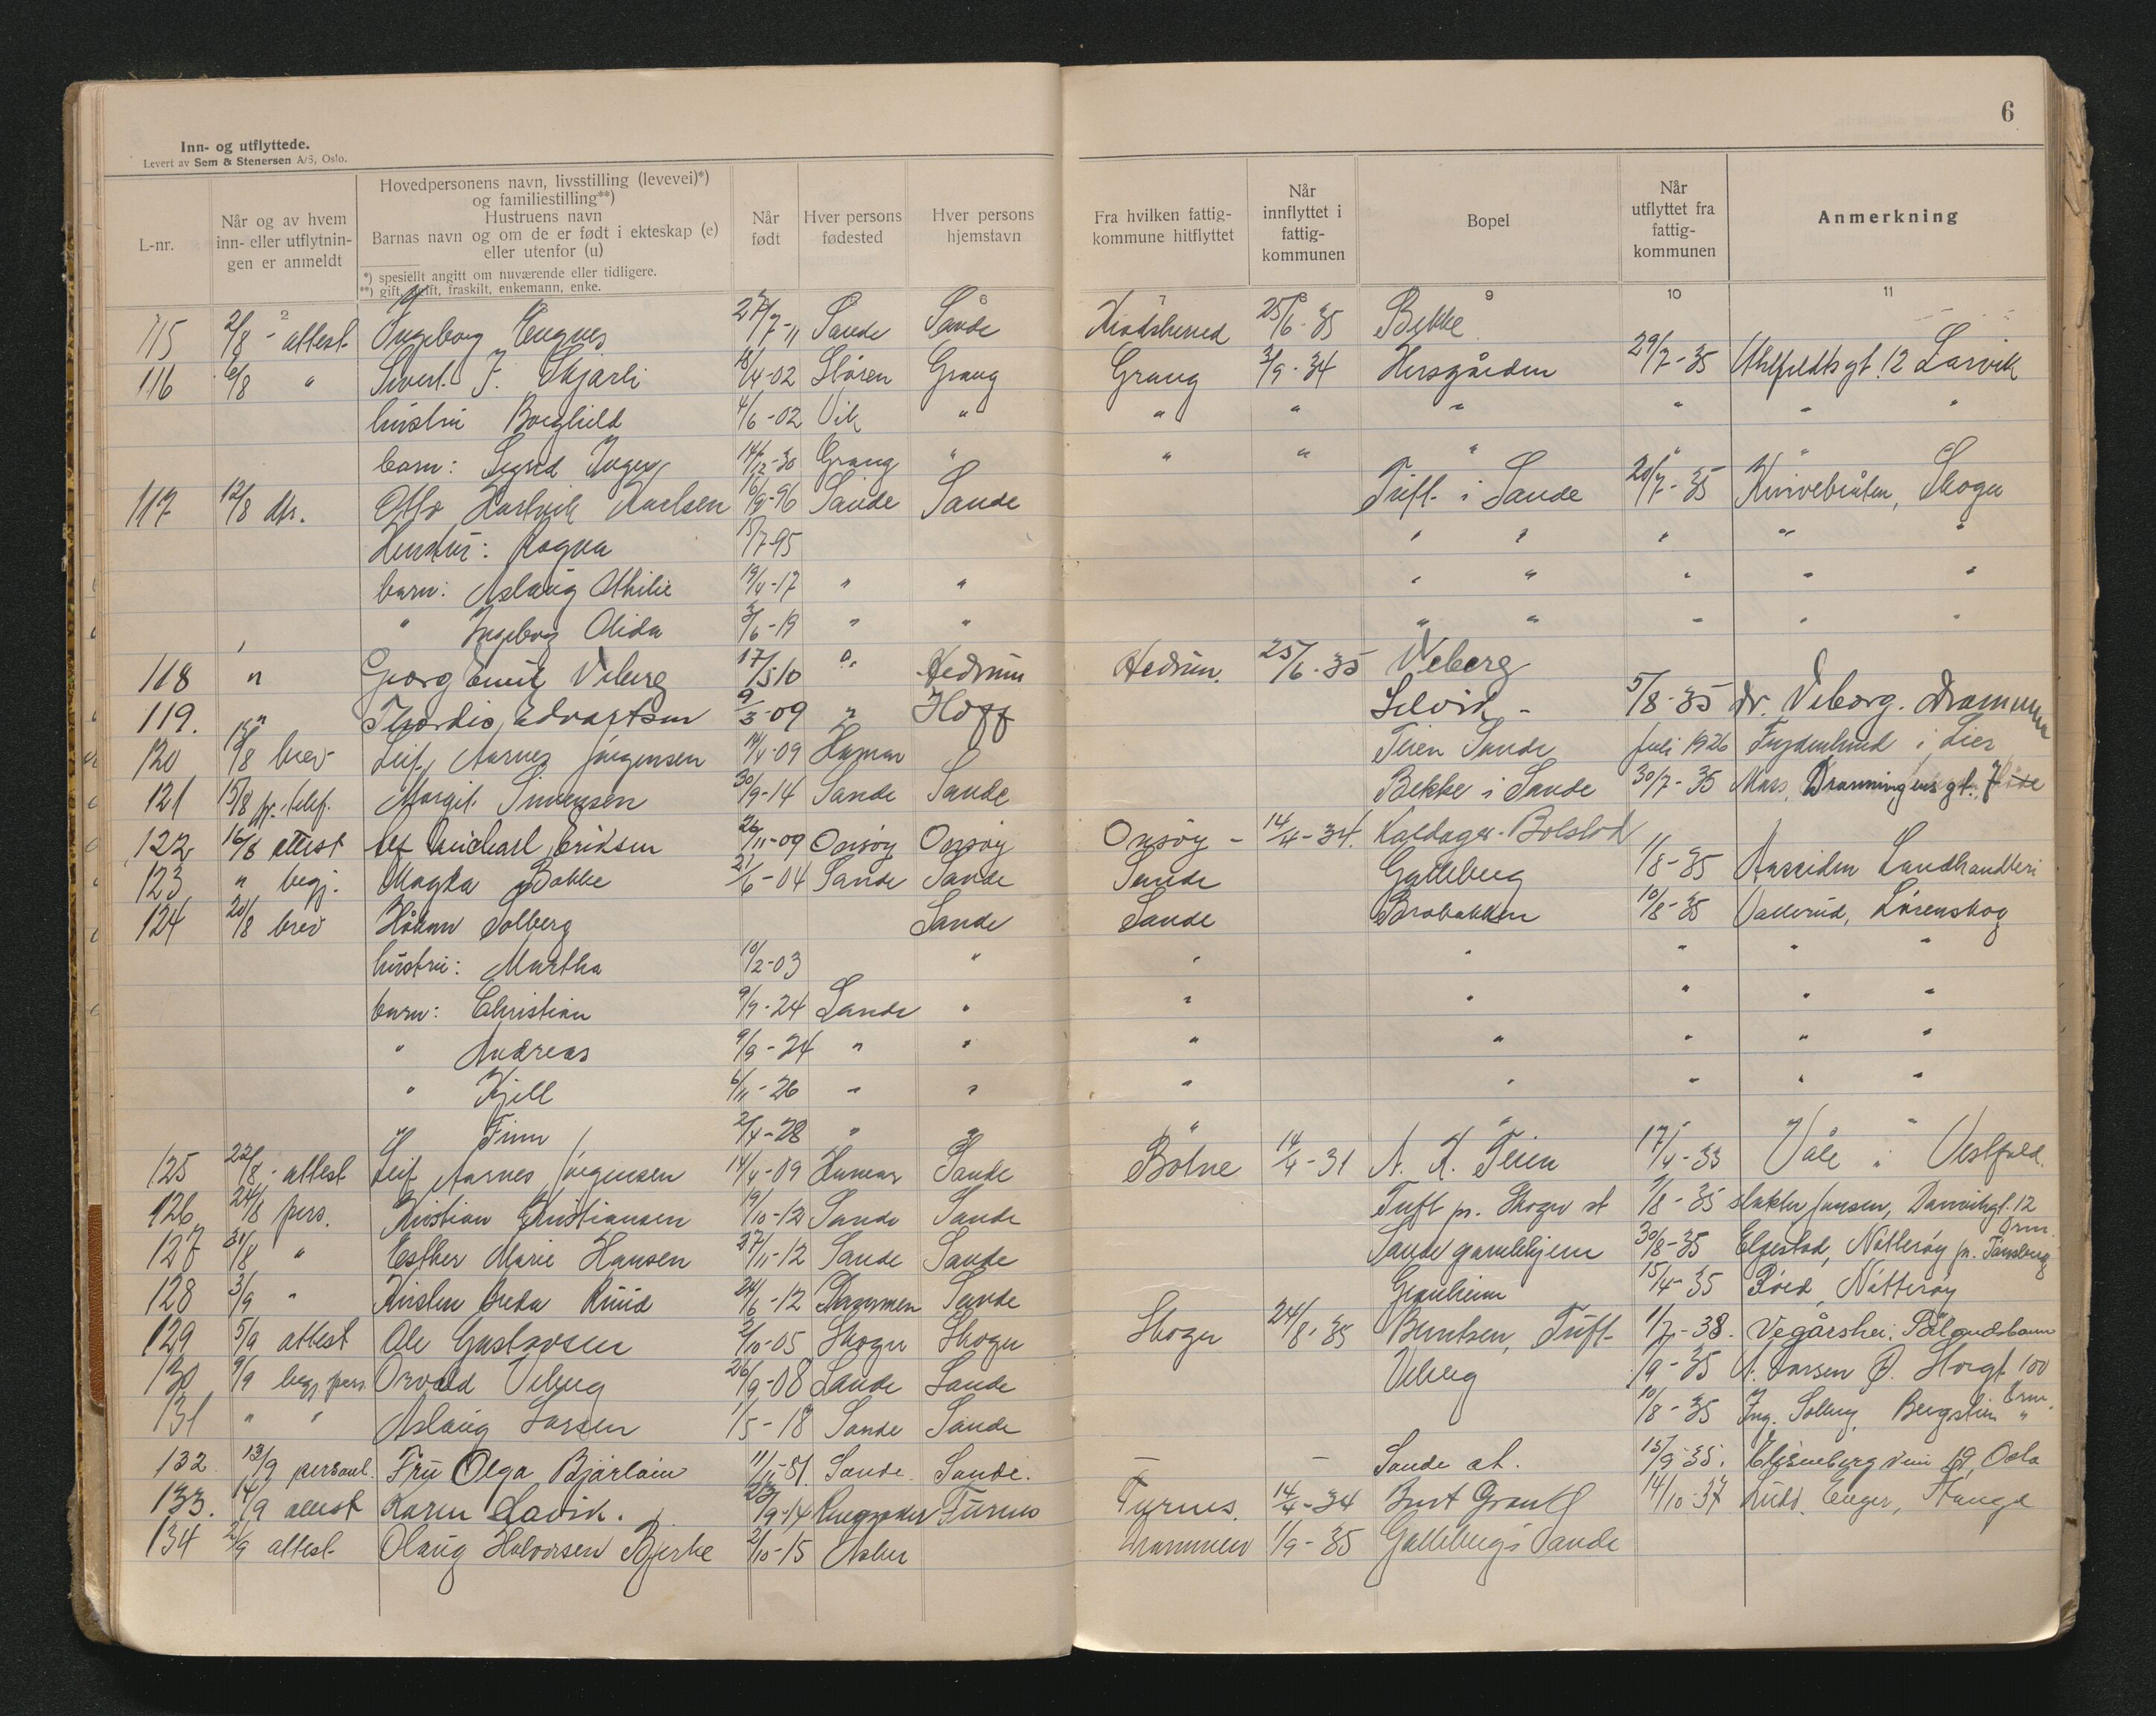 6
Inn- og utflyttede.
Levert av Sem & Stenersen A/S, Oslo.
L-nr.
Når og av hvem inn- eller utflytnin- gen er anmeldt
Hovedpersonens navn, livsstilling (levevei)*)
og familiestilling**)
Hustruens navn
Barnas navn og om de er født i ekteskap (e)
eller utenfor (u)
*) spesiellt angitt om nuværende eller tidligere.
**) gift, ugift, fraskilt, enkemann, enke.
Når født
Hver persons fødested
Hver persons hjemstavn
Fra hvilken fattig- kommune hitflyttet
Når innflyttet i fattig- kommunen
Bopel
Når utflyttet fra fattig- kommunen
Anmerkning
2 6 7 8 9 10 11
115 2/8 - attest Ingeborg Engnes 27/7-11 Sande Sande 25/6-35 Bekke
116 6/8 " J. Skjarli 18/4-02 Støren Grong Grong 3/9-34 29/7-35 12 Larvik
hustru Borghild 4/6-02 Vik " " " " " " "
barn: Sigrid Inger 14/12-30 Grong " " " " " "
117 12/8 Otto Hartvik Karlsen 16/9-96 Sande Sande Tuft i Sande 20/7-35 Skoger
Hustru: Ragna 15/7-95 " " " " "
barn: Aslaug Othilie 19/4-17 " " " " " " "
" Ingeborg Alida 3/6-19 " " " " " " "
118 " Georg Emil Viberg 17/5 10 " Hedrum Hedrum. 25/6-35 Veberg
119. " Thordis Edvartsen 9/3-09 " Hoff Selvik - 5/8-35 dr. Viborg. Drammen
120 /8 brev Leif Aarnes Jørgensen 14/4-09 Hamar Teien Sande Juli 1926 Frydenlund i Lier
121 15/8 pr. telef. Margit Simensen 30/9-14 Sande Sande Bekke i Sande 30/7-35 Moss, Dronningens gt.
122 16/8 attest Michael Eriksen 26/11-09 Onsøy Onsøy Onsøy - 14/4-34. Kaldager-Bolstad
123 " begj. Magda Bakke 21/6-04 Sande Sande Sande Galleberg 1/8-35 Landhandleri
124 20/8 brev Håkon Solberg Sande Sande Brobakken 10/8-35 Vallerud, Lørenskog
hustru: Martha 10/2-03 " " " " " "
barn: Christian 9/9-24 Sande " " " " " "
" Andreas 9/9-24 " " " " " " "
" Kjell 6/11-26 " " " " " " "
" Finn 2/4-28 " " " " " "
125 22/8 - attest Leif Aarnes Jørgensen 14/4-09 Hamar Sande Botne 14/4-31 A. K. Teien 17/4-33 Våle i Vestfold.
126 24/8 pers. Kristian Kristiansen 19/10-12 Sande Sande Tuft pr. Skoger st /8-35 slakter Jensen, 12 Drm.
127 31/8 " Esther Marie Hansen 27/11-12 Sande Sande Sande gamlehjem 30/8-35 Elgestad, Nøtterøy pr. Tønsberg
128 3/9 " Kirsten Ruud 24/6-12 Drammen Sande Granheim 15/4-35 Nøtterøy
129 5/9 attest Ole Gustavsen 2/10-05 Skoger Skoger Skoger 24/8-35 Berntsen, Tuft 1/7-38. Vegårshei.
130 9/9 begj. pers Orvald Viberg 26/9-08 Sande Sande Viberg /9-35 100 Drm.
131 " " Aslaug Larsen 1/5-18 Sande Sande 10/8-35 Ing. Solberg, Bergstien "
132 13/9 personl. Fru Olga 11/11-81. Sande. Sande. — — Sande st. 15/9-35. 19, Oslo
133. 14/9 attest Karen Lavik. 23/9-14 Ringsaker Furnes Furnes. 14/4-34 14/10-37 Enger, Stange
134 2/9 attest Olaug Halvorsen Bjerke 2/10-15 Asker Drammen 1/9-35 Galleberg i Sande